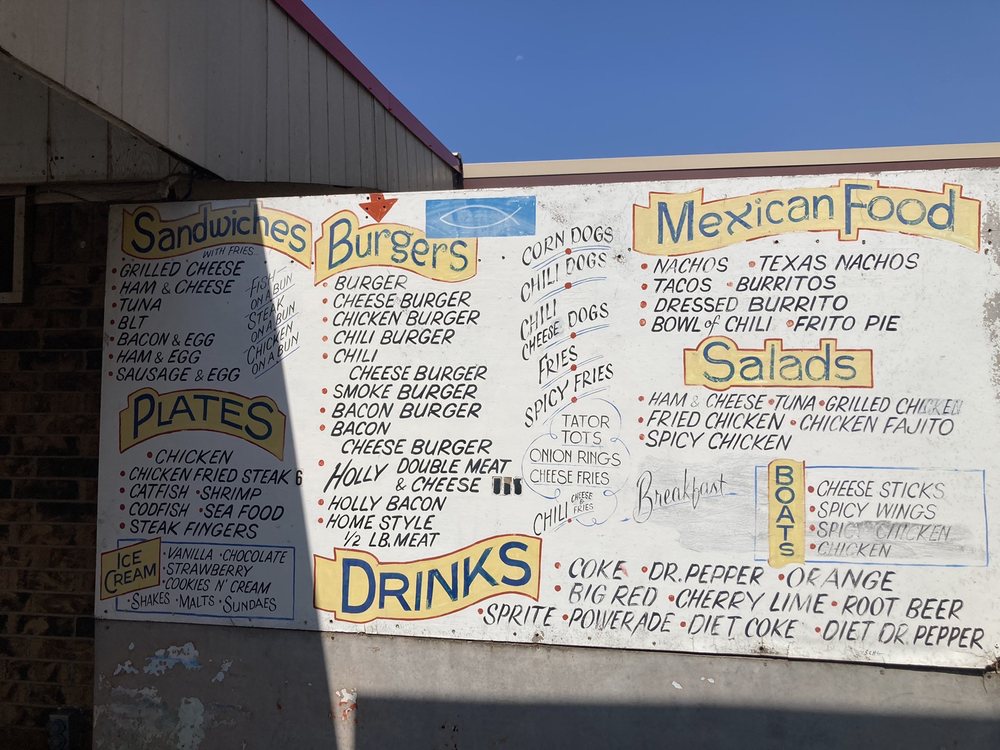 Sandwiches
WITH FRIES...
• GRILLED CHEESE
• HAM & CHEESE
• TUNA
• BLT
• BACON & EGG
• HAM & EGG
• SAUSAGE & EGG
FISH
ON A BUN
STEAK
ON A BUN
CHICKEN
ON A BUN
PLATES
• CHICKEN
• CHICKEN FRIED STEAK 6
• CATFISH • SHRIMP
• CODFISH • SEA FOOD
• STEAK FINGERS
ICE
CREAM
• VANILLA • CHOCOLATE
• STRAWBERRY
• COOKIES N' CREAM
• SHAKES • MALTS • SUNDAES
Burgers
• BURGER
• CHEESE BURGER
• CHICKEN BURGER
• CHILI BURGER
• CHILI
CHEESE BURGER
• SMOKE BURGER
• BACON BURGER
• BACON
CHEESE BURGER
• HOLLY DOUBLE MEAT
& CHEESE
• HOLLY BACON
• HOME STYLE
1/2 LB. MEAT
CORN DOGS
CHILI DOGS
CHILI
CHEESE DOGS
FRIES
SPICY FRIES
TATOR
TOTS
ONION RINGS
CHEESE FRIES
CHILI CHEESE & FRIES
Breakfast
Mexican Food
• NACHOS • TEXAS NACHOS
• TACOS • BURRITOS
• DRESSED BURRITO
• BOWL of CHILI • FRITO PIE
Salads
• HAM & CHEESE • TUNA • GRILLED CHICKEN
• FRIED CHICKEN • CHICKEN FAJITO
• SPICY CHICKEN
BOATS
• CHEESE STICKS
• SPICY WINGS
• SPICY CHICKEN
• CHICKEN
DRINKS
• COKE • DR. PEPPER • ORANGE
BIG RED • CHERRY LIME • ROOT BEER
• SPRITE • POWERADE • DIET COKE • DIET DR. PEPPER